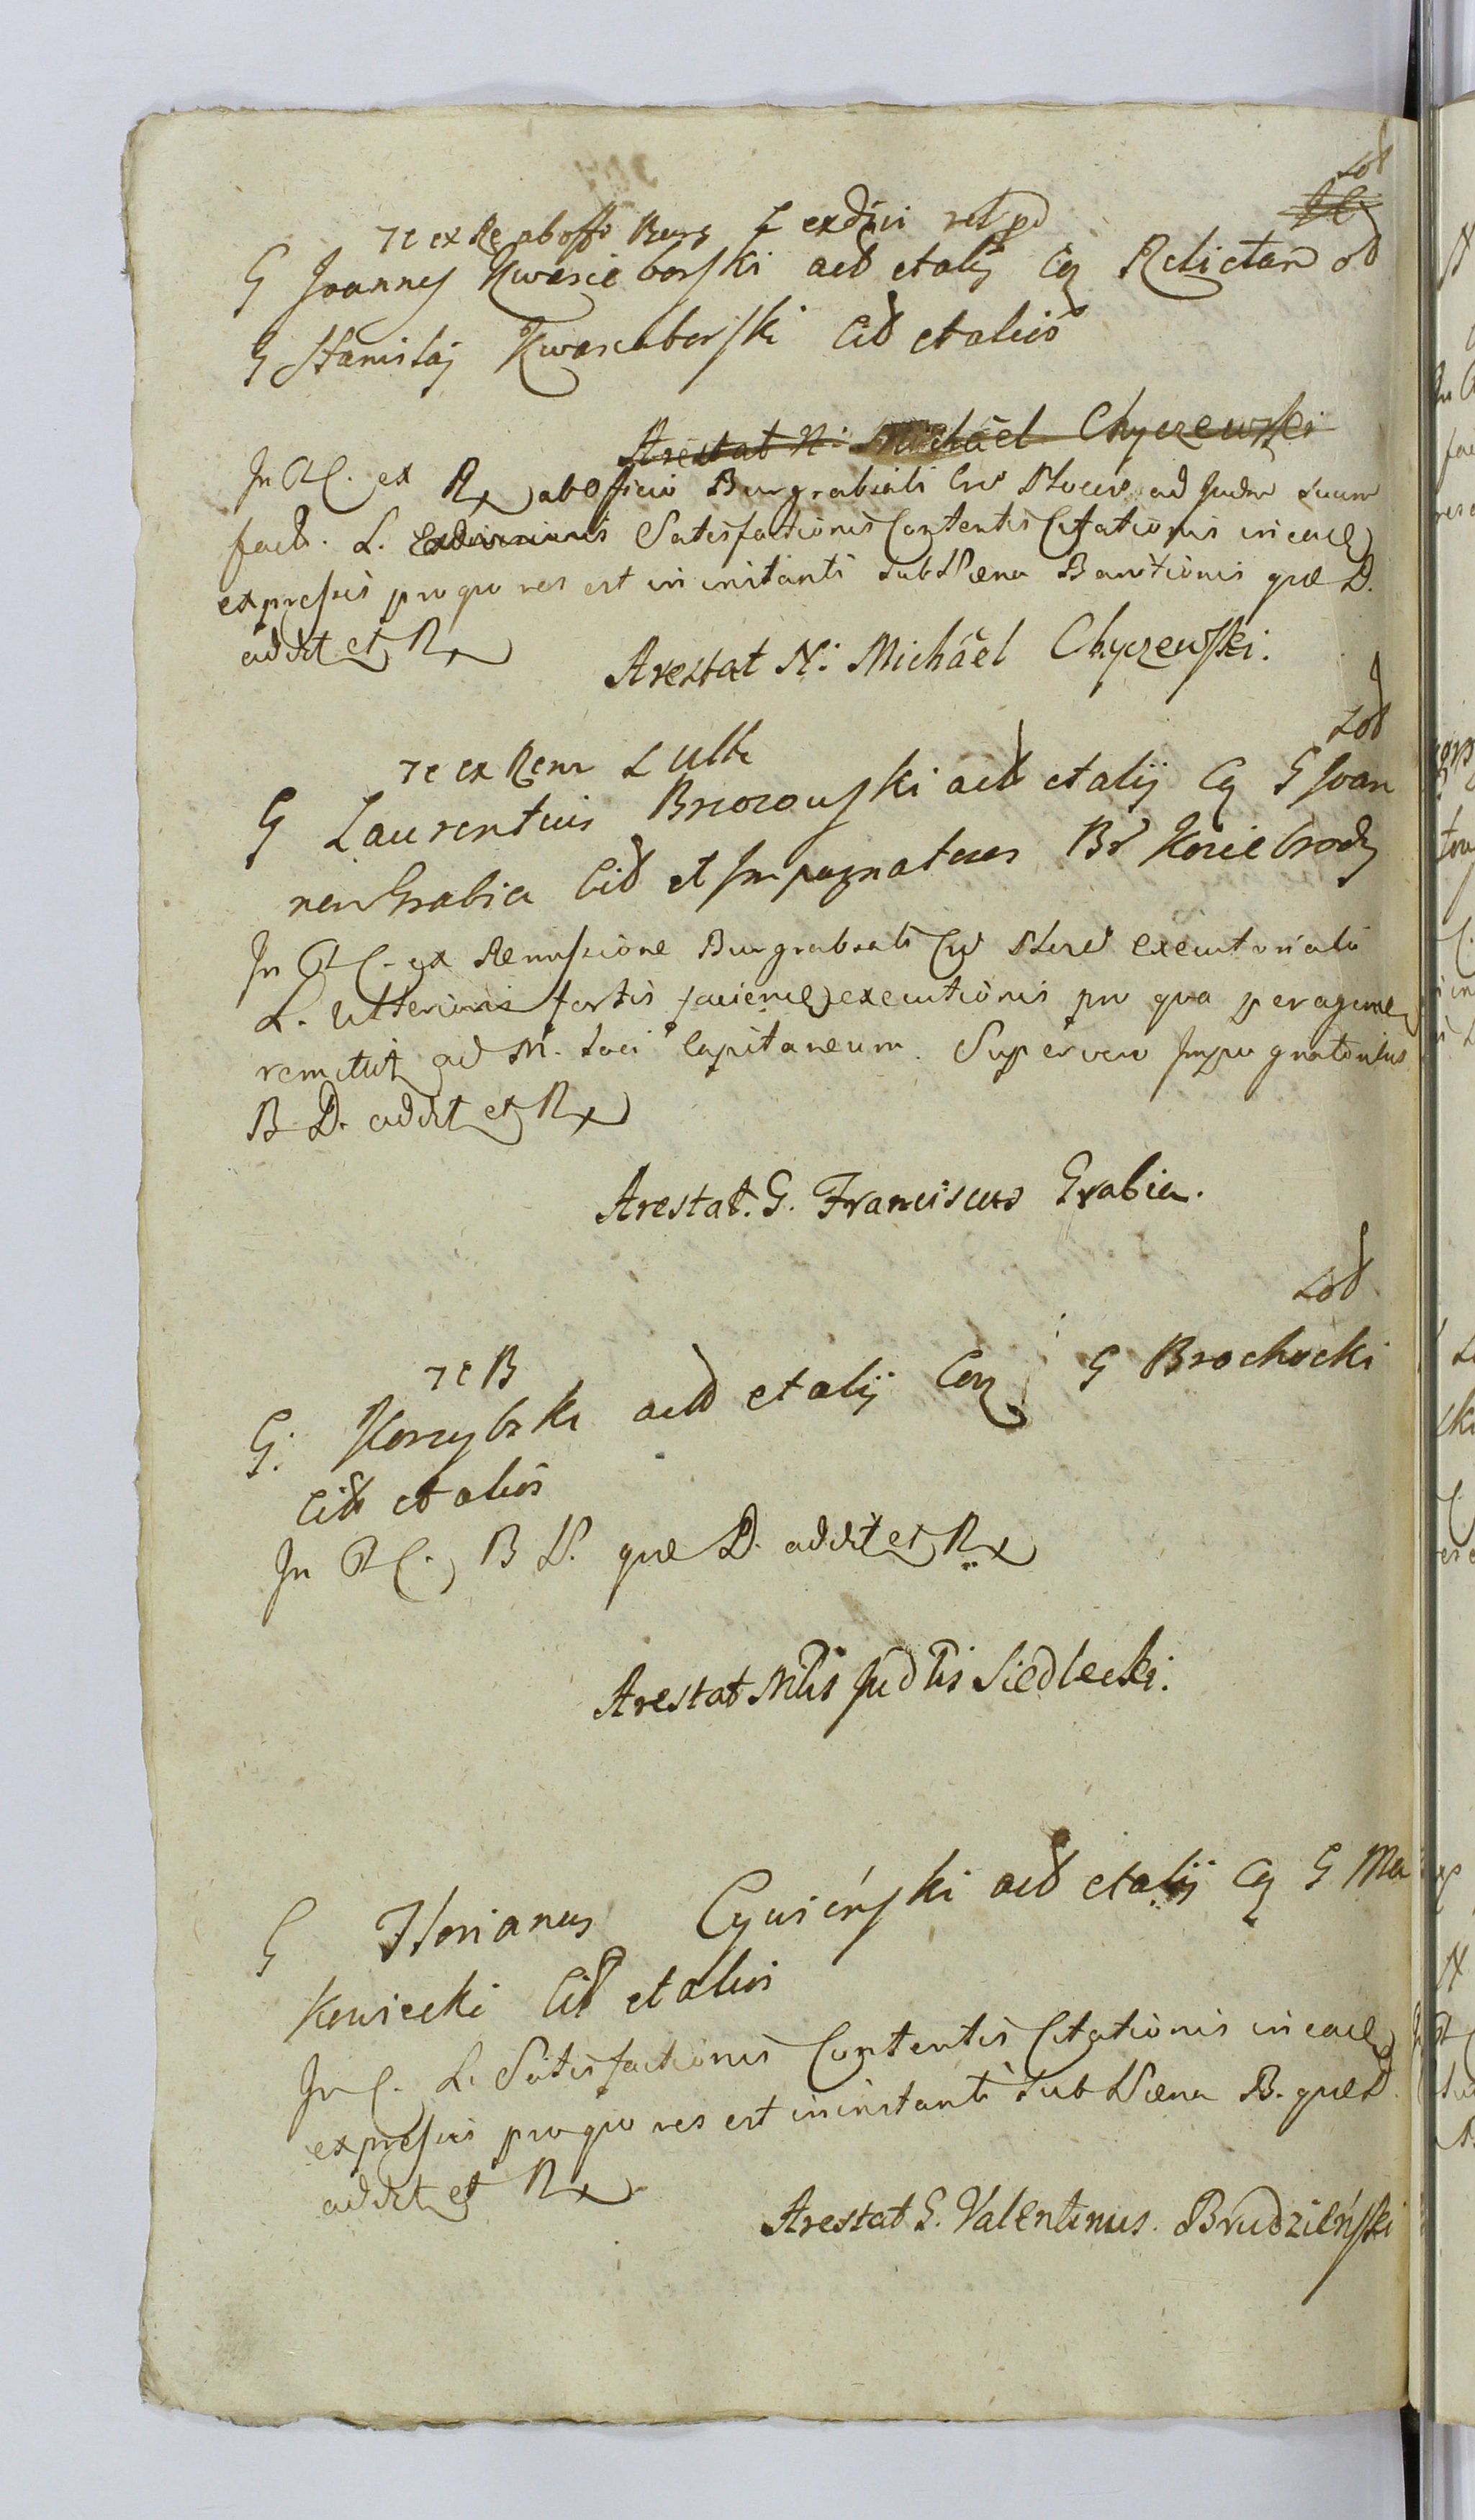 Sod
7t ex Re ab offi Burg L exdivi
G Joannes Kwasieborski act et alij Cq Relictam
G Stanislaj Kwasieborski Cit et alios
Arestat N: Michaël Chyczewski
In RC. ex Rx ab officio Burgrabiali Crw Plocen ad Judm suum
fact. L. Satisfactionis Contentis Citationis in eade
expressis pro quo res est in instanti sub Paena Banitionis quae D.
addit et Rx
Arestat N: Michaël Chyczewski.
Sod
7t ex Rem L Ult
G Laurentius Brzozowski act et alij Cq G Joan
nem Grabia Cit et Impugnatores Bo Koziebrody
In RC. ex Remissione Burgrabiali Executoriali
L. Ulterioris fortis executionis pro qua peragen
remittit ad M. Loci Capitaneum. Super vero Impugnatoribus
B D. addit et Rx
Arestat. G. Franciscus Grabia.
Sod
7t B
G. Korzybski act et alij Con G Brochocki
Cit et alios
In RC. B P. quae D. addit et Rx
Arestat Mlis Judlis Siedlecki.
G Florianus Cywiński act et alij Cq G Ma
kowiecki Cit et alios
In C. L. Satisfactionis Contentis Citationis in eade
expressis pro quo res est in instanti sub Paena B. quae D.
addit et Rx
Arestat G. Valentinus. Brudzieński